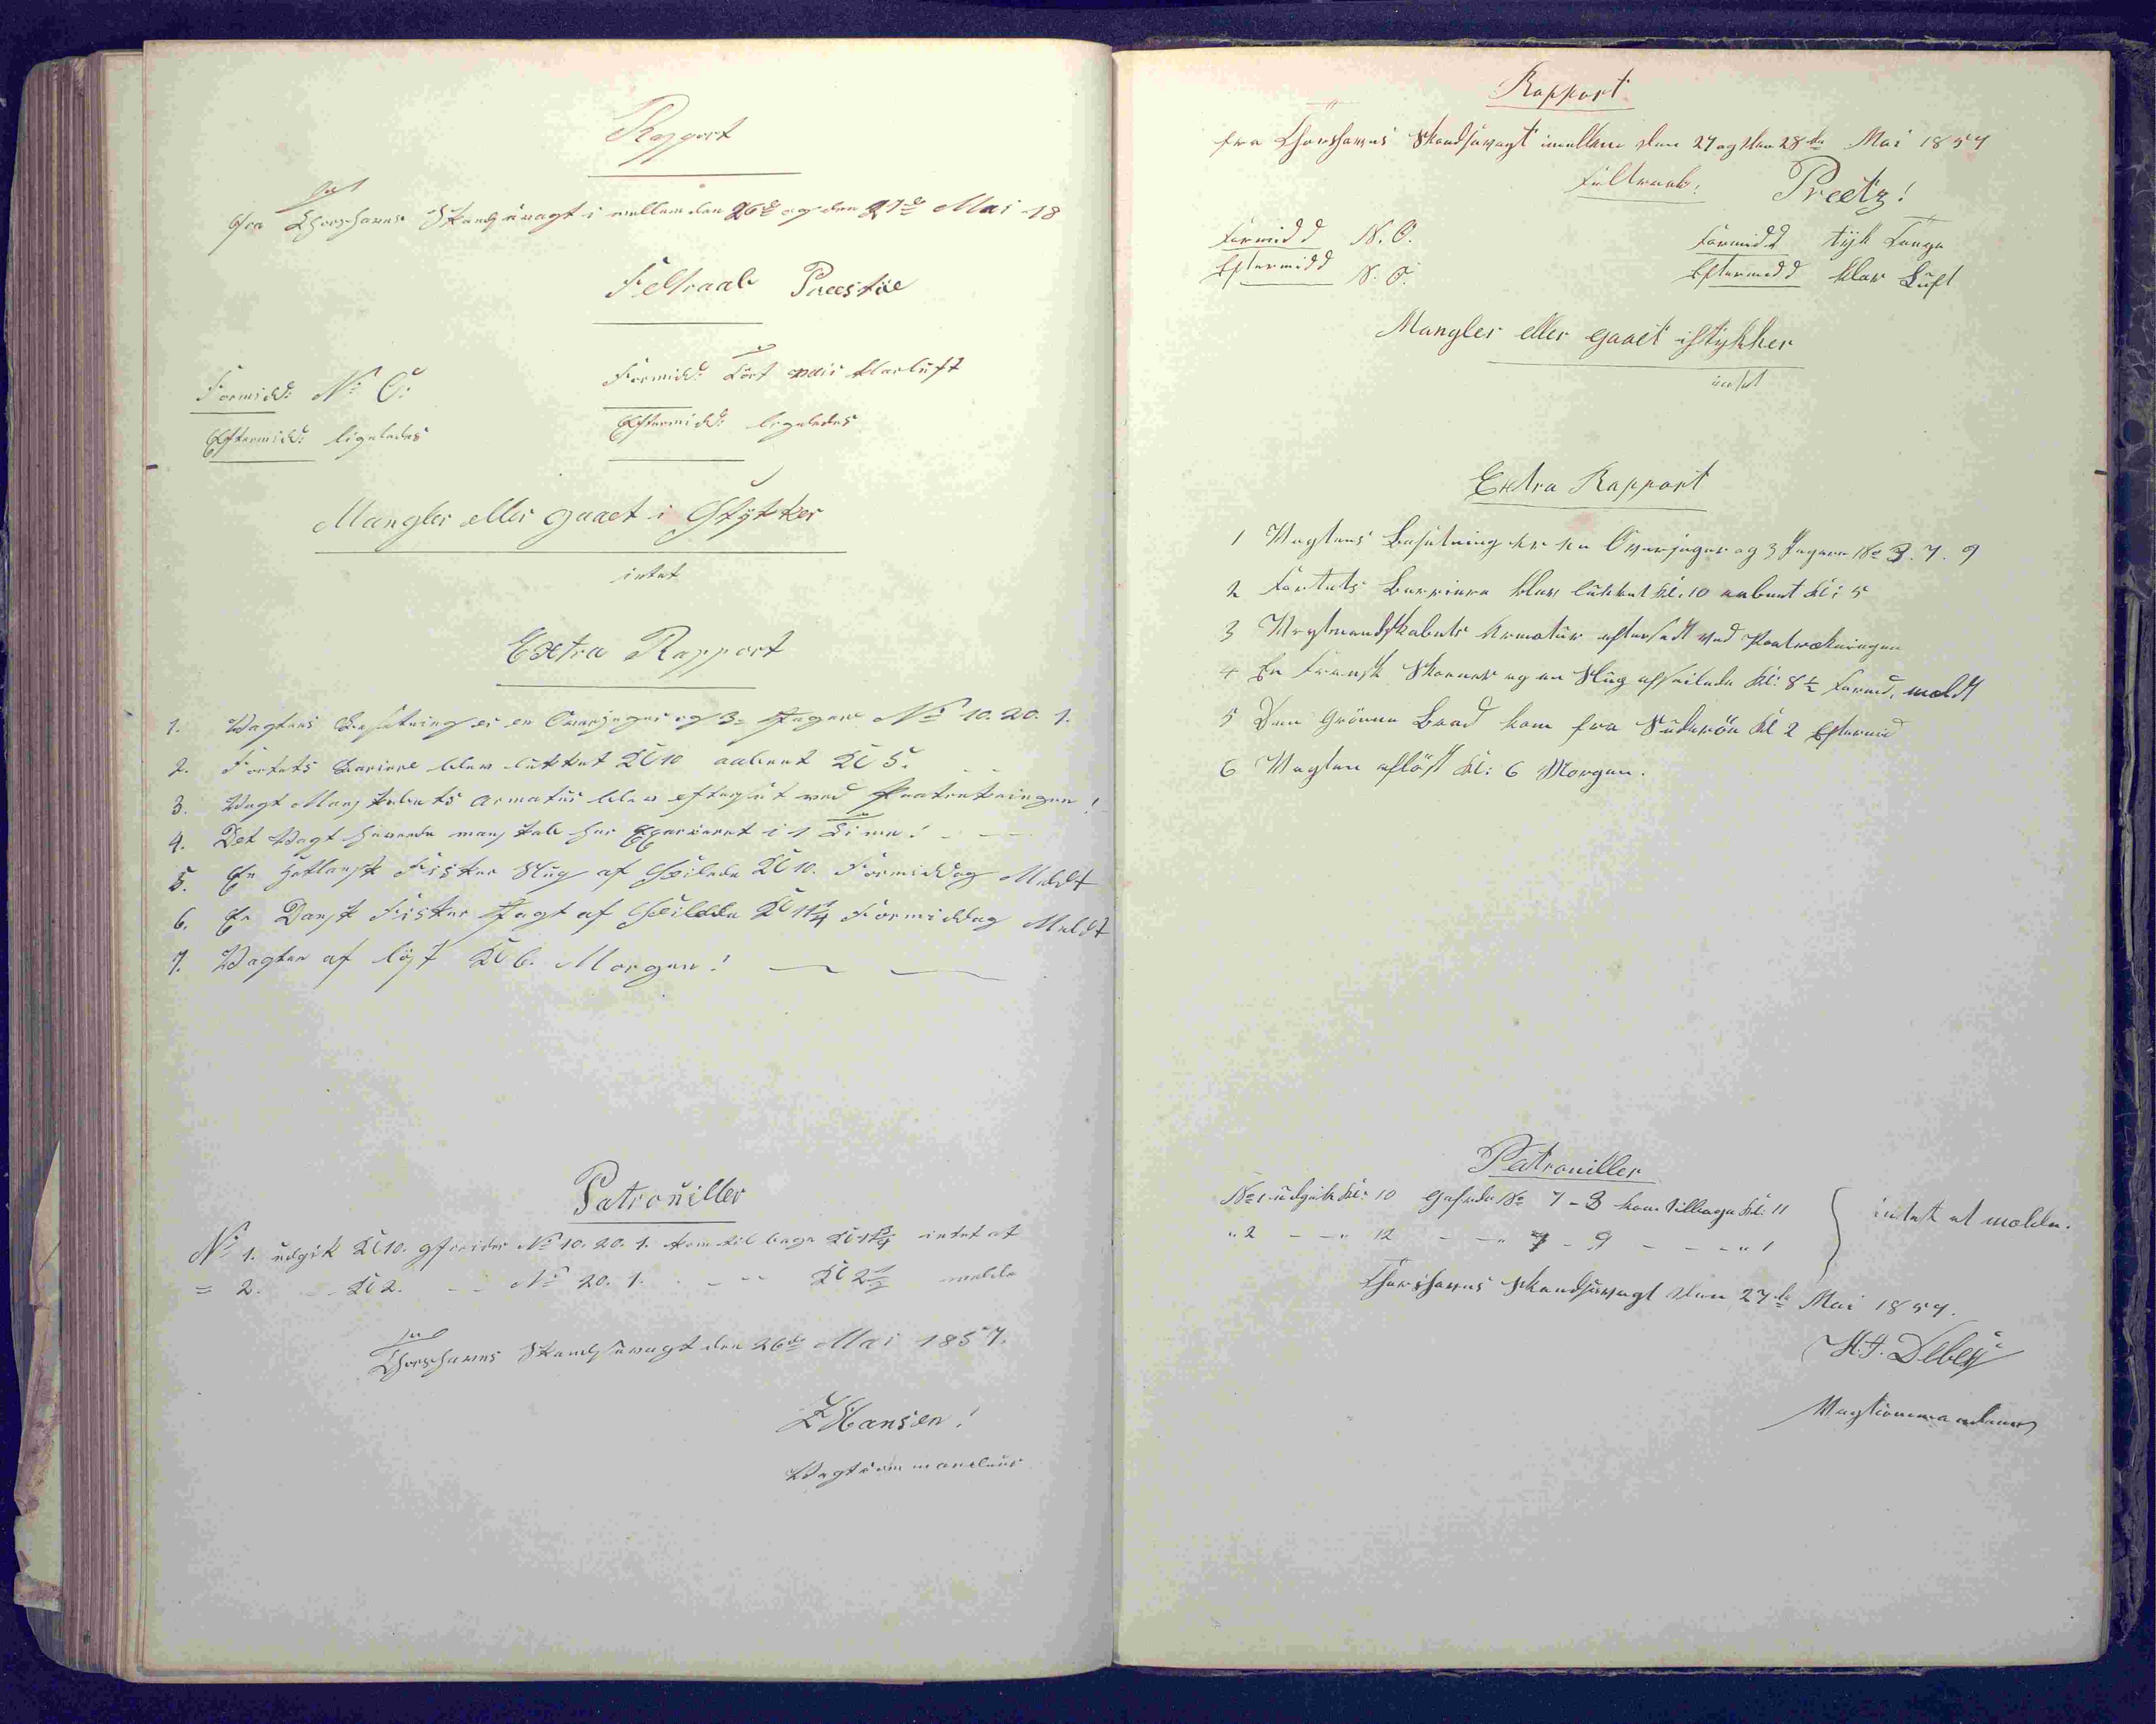 Rapport
fra Thorshavns Skandsevagt i mellem den 26de og den 27de Mai 18
Feltraab Præstøe
Formidd: N: O:
Formidd: Tört mais klarluft
Eftermidd: ligeledes
Eftermidd: ligeledes
Mangler eller gaaet i Stykker
intet
Extra Rapport
1. Vagtens Besætning er en Overjæger og 3 Jægere No 10. 20. 1.
2. Fortets Bariere blev lukket Kl 10 aabent Kl 5.
3. Vagt Manskabets Armatur blev efterset ved Paatrædningen!
4. Det Vagt havende manskab har Exerceret i 1 Time!
5. En Fisker Slup af Seilede Kl 10. Formiddag Meldt
6. En Dansk Fisker Jagt af Seilede Kl 11 1/4 Formiddag Meldt
7. Vagten af löst Kl 6. Morgen!
Patrouiller
No 1. udgik Kl 10. No 10. 20. 1. kom til bage Kl intet at
= 2. - - Kl 2. - - No 20. 1. - - - Kl 2 1/2 melde
Thorshavns Skandsevagt den 26de Mai 1857.
Hansen!
Vagtcommandeur
Rapport
fra Thorshavns Skandsevagt imellem den 27 og den 28de Mai 1857
Feltraab: Preetz!
Formidd N. O.
Formidd tyk Taage
Eftermidd N. O.
Eftermidd klar Luft
Mangler eller gaaet istykker
intet
Extra Rapport
1 Vagtens Besætning er en Overjæger og 3 Jægere No 3. 7. 9
2 Fortets Barriere blev lukket kl: 10 aabent kl: 5
3 Vagtmandskabets Armatur efterseet ved Paatrædningen
4 En Fransk Skonnert og en Slup afseilede kl: 8 1/2 Formd. meldt
5 Den Grönne Baad kom fra Suderöe kl 2 Eftermid
6 Vagten aflöst kl: 6 Morgen.
Patrouiller
No 1 udgik kl: 10 Gefreder No 7 - 3 kom tilbage kl: 11
intet at melde.
" 2 - - " 12 - - " 7 - 9 - - - " 1
Thorshavns Skandsevagt den 27de Mai 1857.
H. J. Debes
Vagtcommandeur